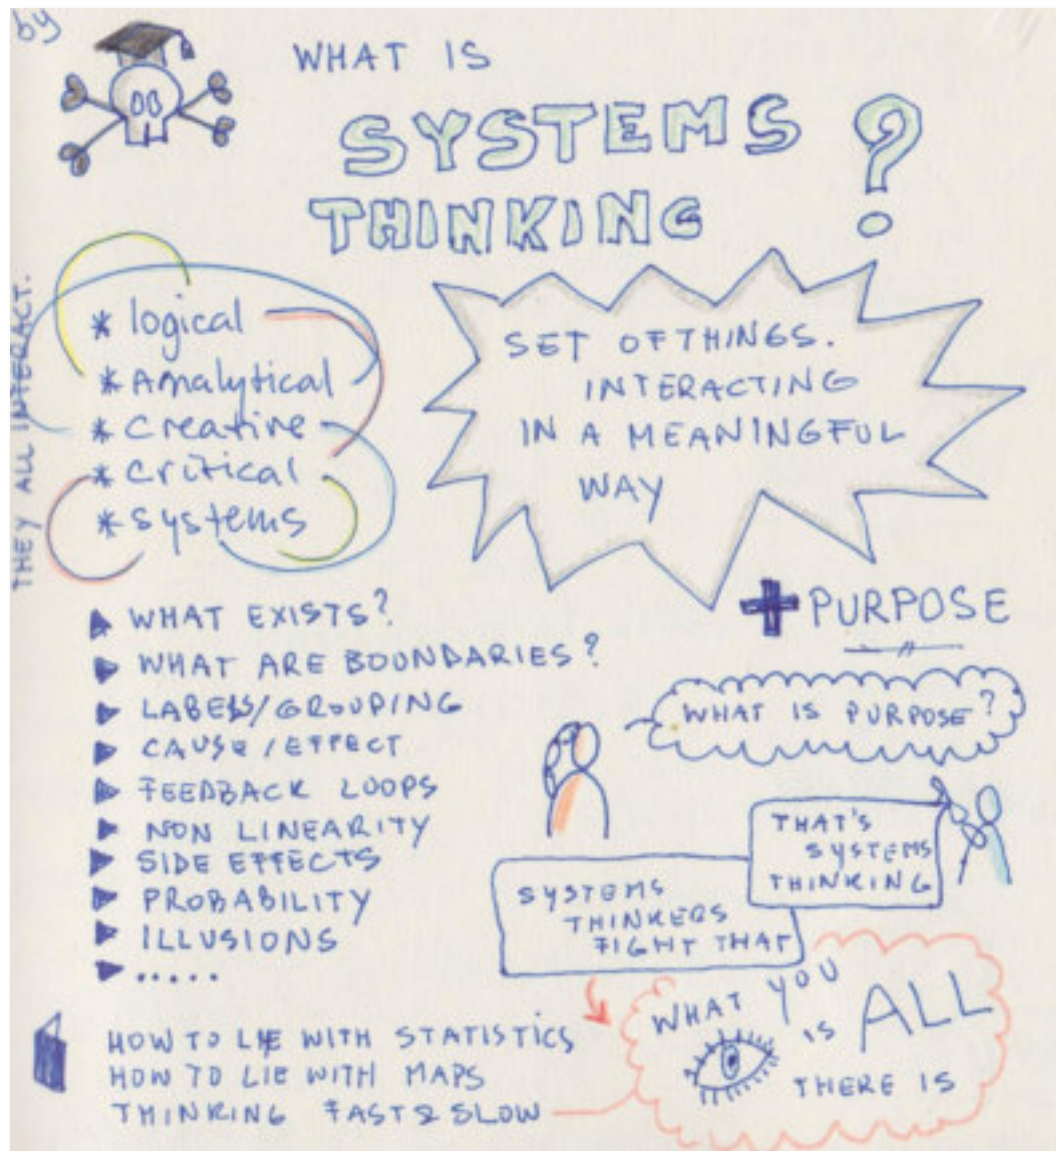 by
WHAT IS
SYSTEMS ?
THINKING
THEY ALL INTERACT.
* logical
* Analytical
* Creative
* critical
* systems
SET OF THINGS.
INTERACTING
IN A MEANINGFUL
WAY
+ PURPOSE
WHAT IS PURPOSE?
WHAT EXISTS?
WHAT ARE BOUNDARIES?
LABELS/GROUPING
CAUSE/EFFECT
FEEDBACK LOOPS
NON LINEARITY
SIDE EFFECTS
PROBABILITY
ILLUSIONS
.....
THAT'S
SYSTEMS
THINKING
SYSTEMS
THINKERS
FIGHT THAT
WHAT YOU
IS ALL
THERE IS
HOW TO LIE WITH STATISTICS
HOW TO LIE WITH MAPS
THINKING FAST & SLOW